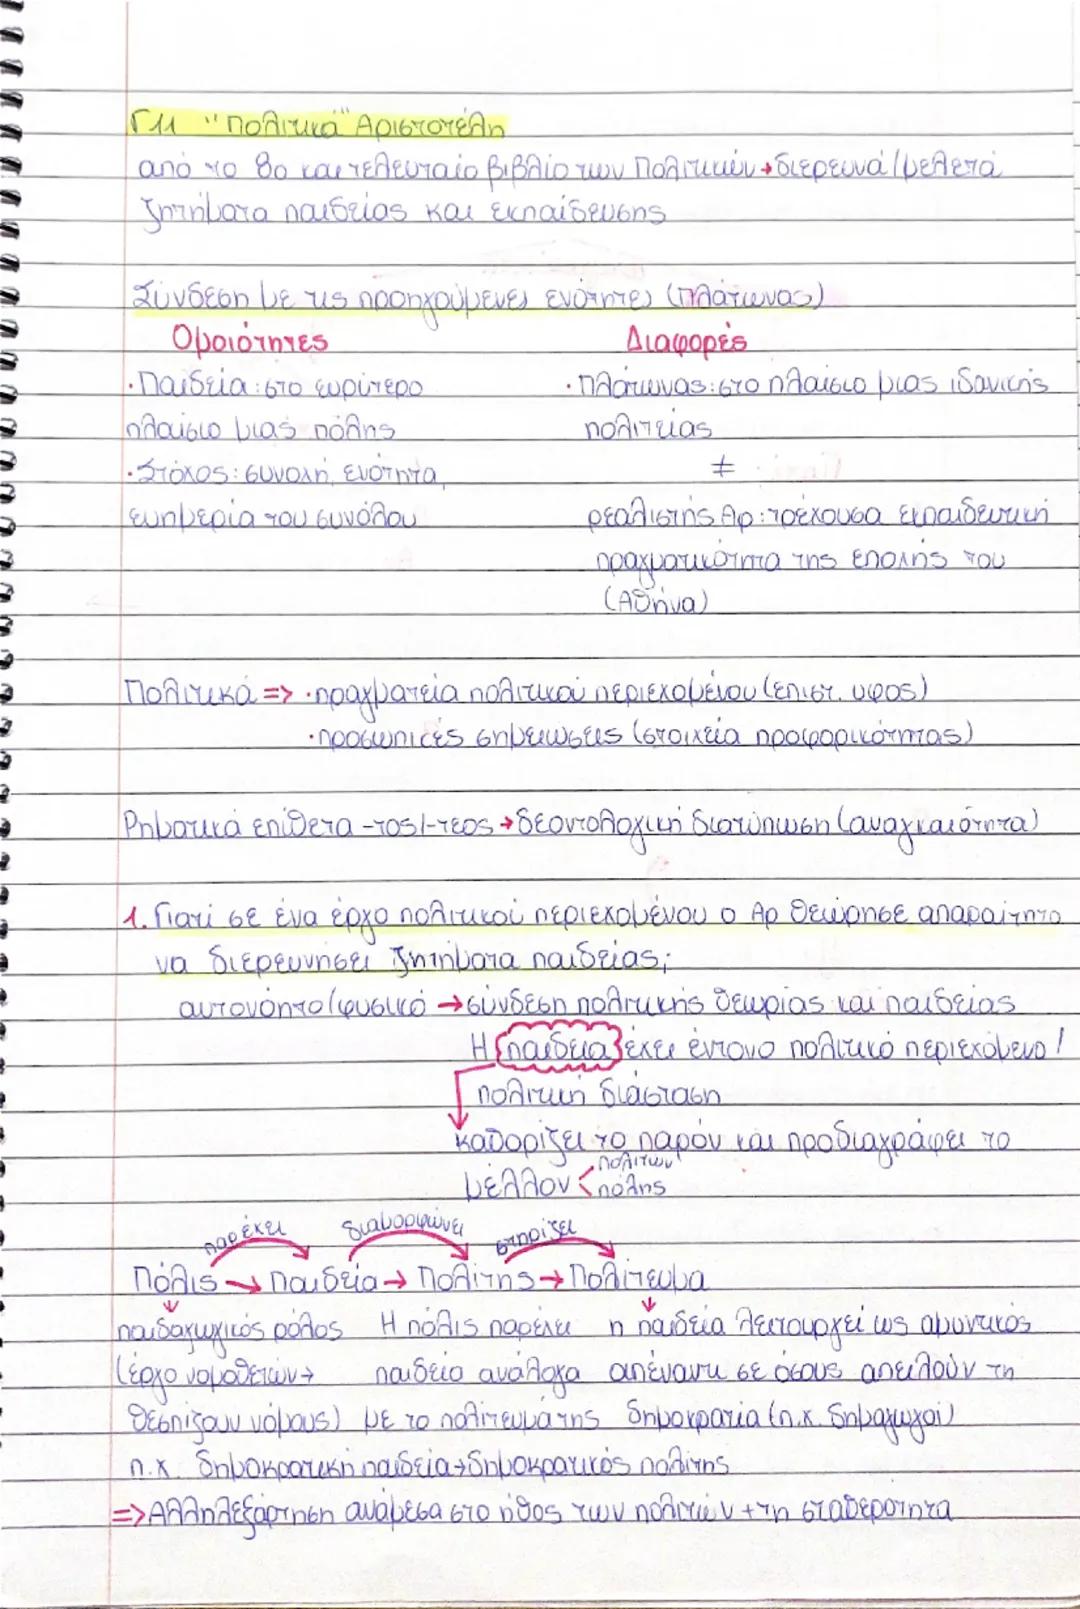 Γ11 "Πολιτικά" Αριστοτέλη
από το 8ο και τελευταίο βιβλίο των Πολιτικών → διερευνά/μελετά
ζητήματα παιδείας και εκπαίδευσης
Σύνδεση με τις προηγούμενες ενότητες (Πλάτωνας)
Ομοιότητες Διαφορές
·Παιδεία: στο ευρύτερο ·Πλάτωνας: στο πλαίσιο μιας ιδανικής
πλαίσιο μιας πόλης πολιτείας
·Στόχος: συνοχή, ενότητα, ≠
ευημερία του συνόλου ρεαλιστής Αρ: τρέχουσα εκπαιδευτική
πραγματικότητα της εποχής του
(Αθήνα)
Πολιτικά => ·πραγματεία πολιτικού περιεχομένου (επιστ. ύφος)
·προσωπικές σημειώσεις (στοιχεία προφορικότητας)
Ρηματικά επίθετα -τος/-τεος → δεοντολογική διατύπωση (αναγκαιότητα)
1. Γιατί σε ένα έργο πολιτικού περιεχομένου ο Αρ θεώρησε απαραίτητο
να διερευνήσει ζητήματα παιδείας;
αυτονόητο/φυσικό → σύνδεση πολιτικής θεωρίας και παιδείας
Η παιδεία έχει έντονο πολιτικό περιεχόμενο!
πολιτική διάσταση
καθορίζει το παρόν και προδιαγράφει το
μέλλον < πολιτών
πόλης
παρέχει διαμορφώνει στηρίζει
Πόλις → Παιδεία → Πολίτης → Πολίτευμα
παιδαγωγικός ρόλος Η πόλις παρέχει η παιδεία λειτουργεί ως αμυντικός
(έργο νομοθετών → παιδεία ανάλογα απέναντι σε όσους απειλούν τη
θεσπίζουν νόμους) με το πολίτευμά της δημοκρατία (π.χ. δημαγωγοί)
π.χ. δημοκρατική παιδεία → δημοκρατικός πολίτης
=> Αλληλεξάρτηση ανάμεσα στο ήθος των πολιτών + τη σταθερότητα